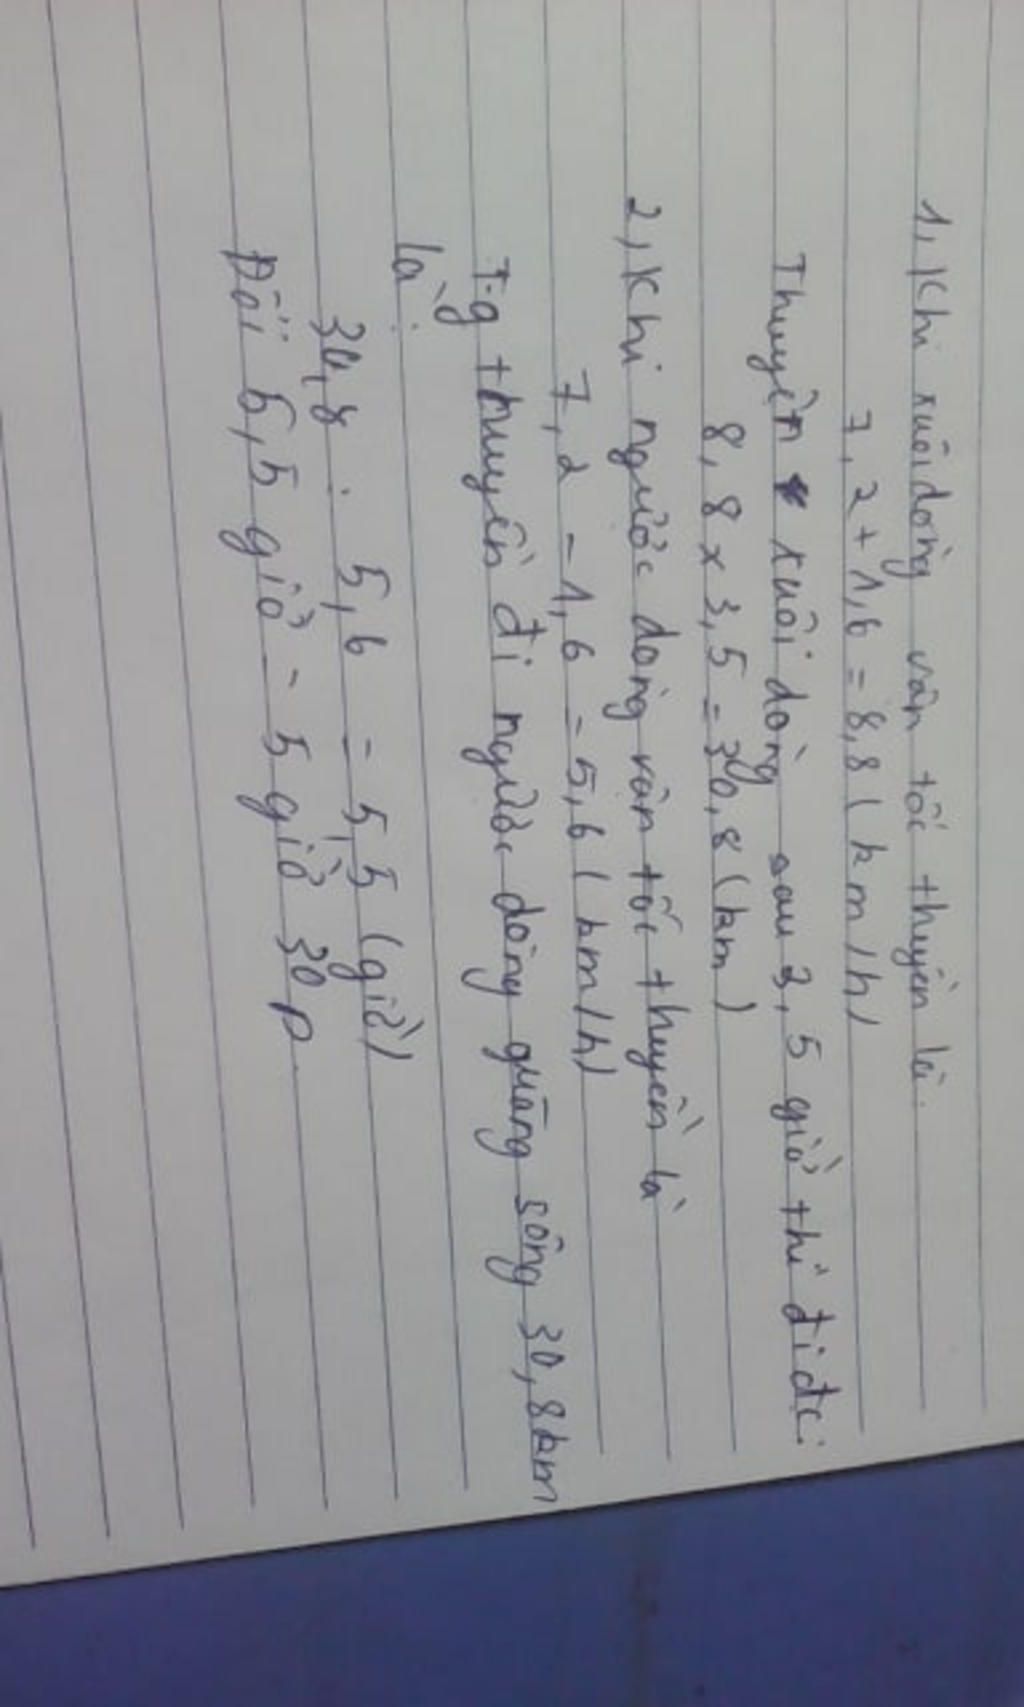 1, Khi xuôi dòng vận tốc thuyền là.
7,2 + 1,6 = 8,8 (km/h)
Thuyền xuôi dòng sau 3,5 giờ thì đi đc:
8,8 x 3,5 = 30,8 (km)
2, Khi ngược dòng vận tốc thuyền là
7,2 - 1,6 = 5,6 (km/h)
T.g thuyền đi ngược dòng quãng sông 30,8km
là:
30,8 : 5,6 = 5,5 (giờ)
Đổi 5,5 giờ = 5 giờ 30p